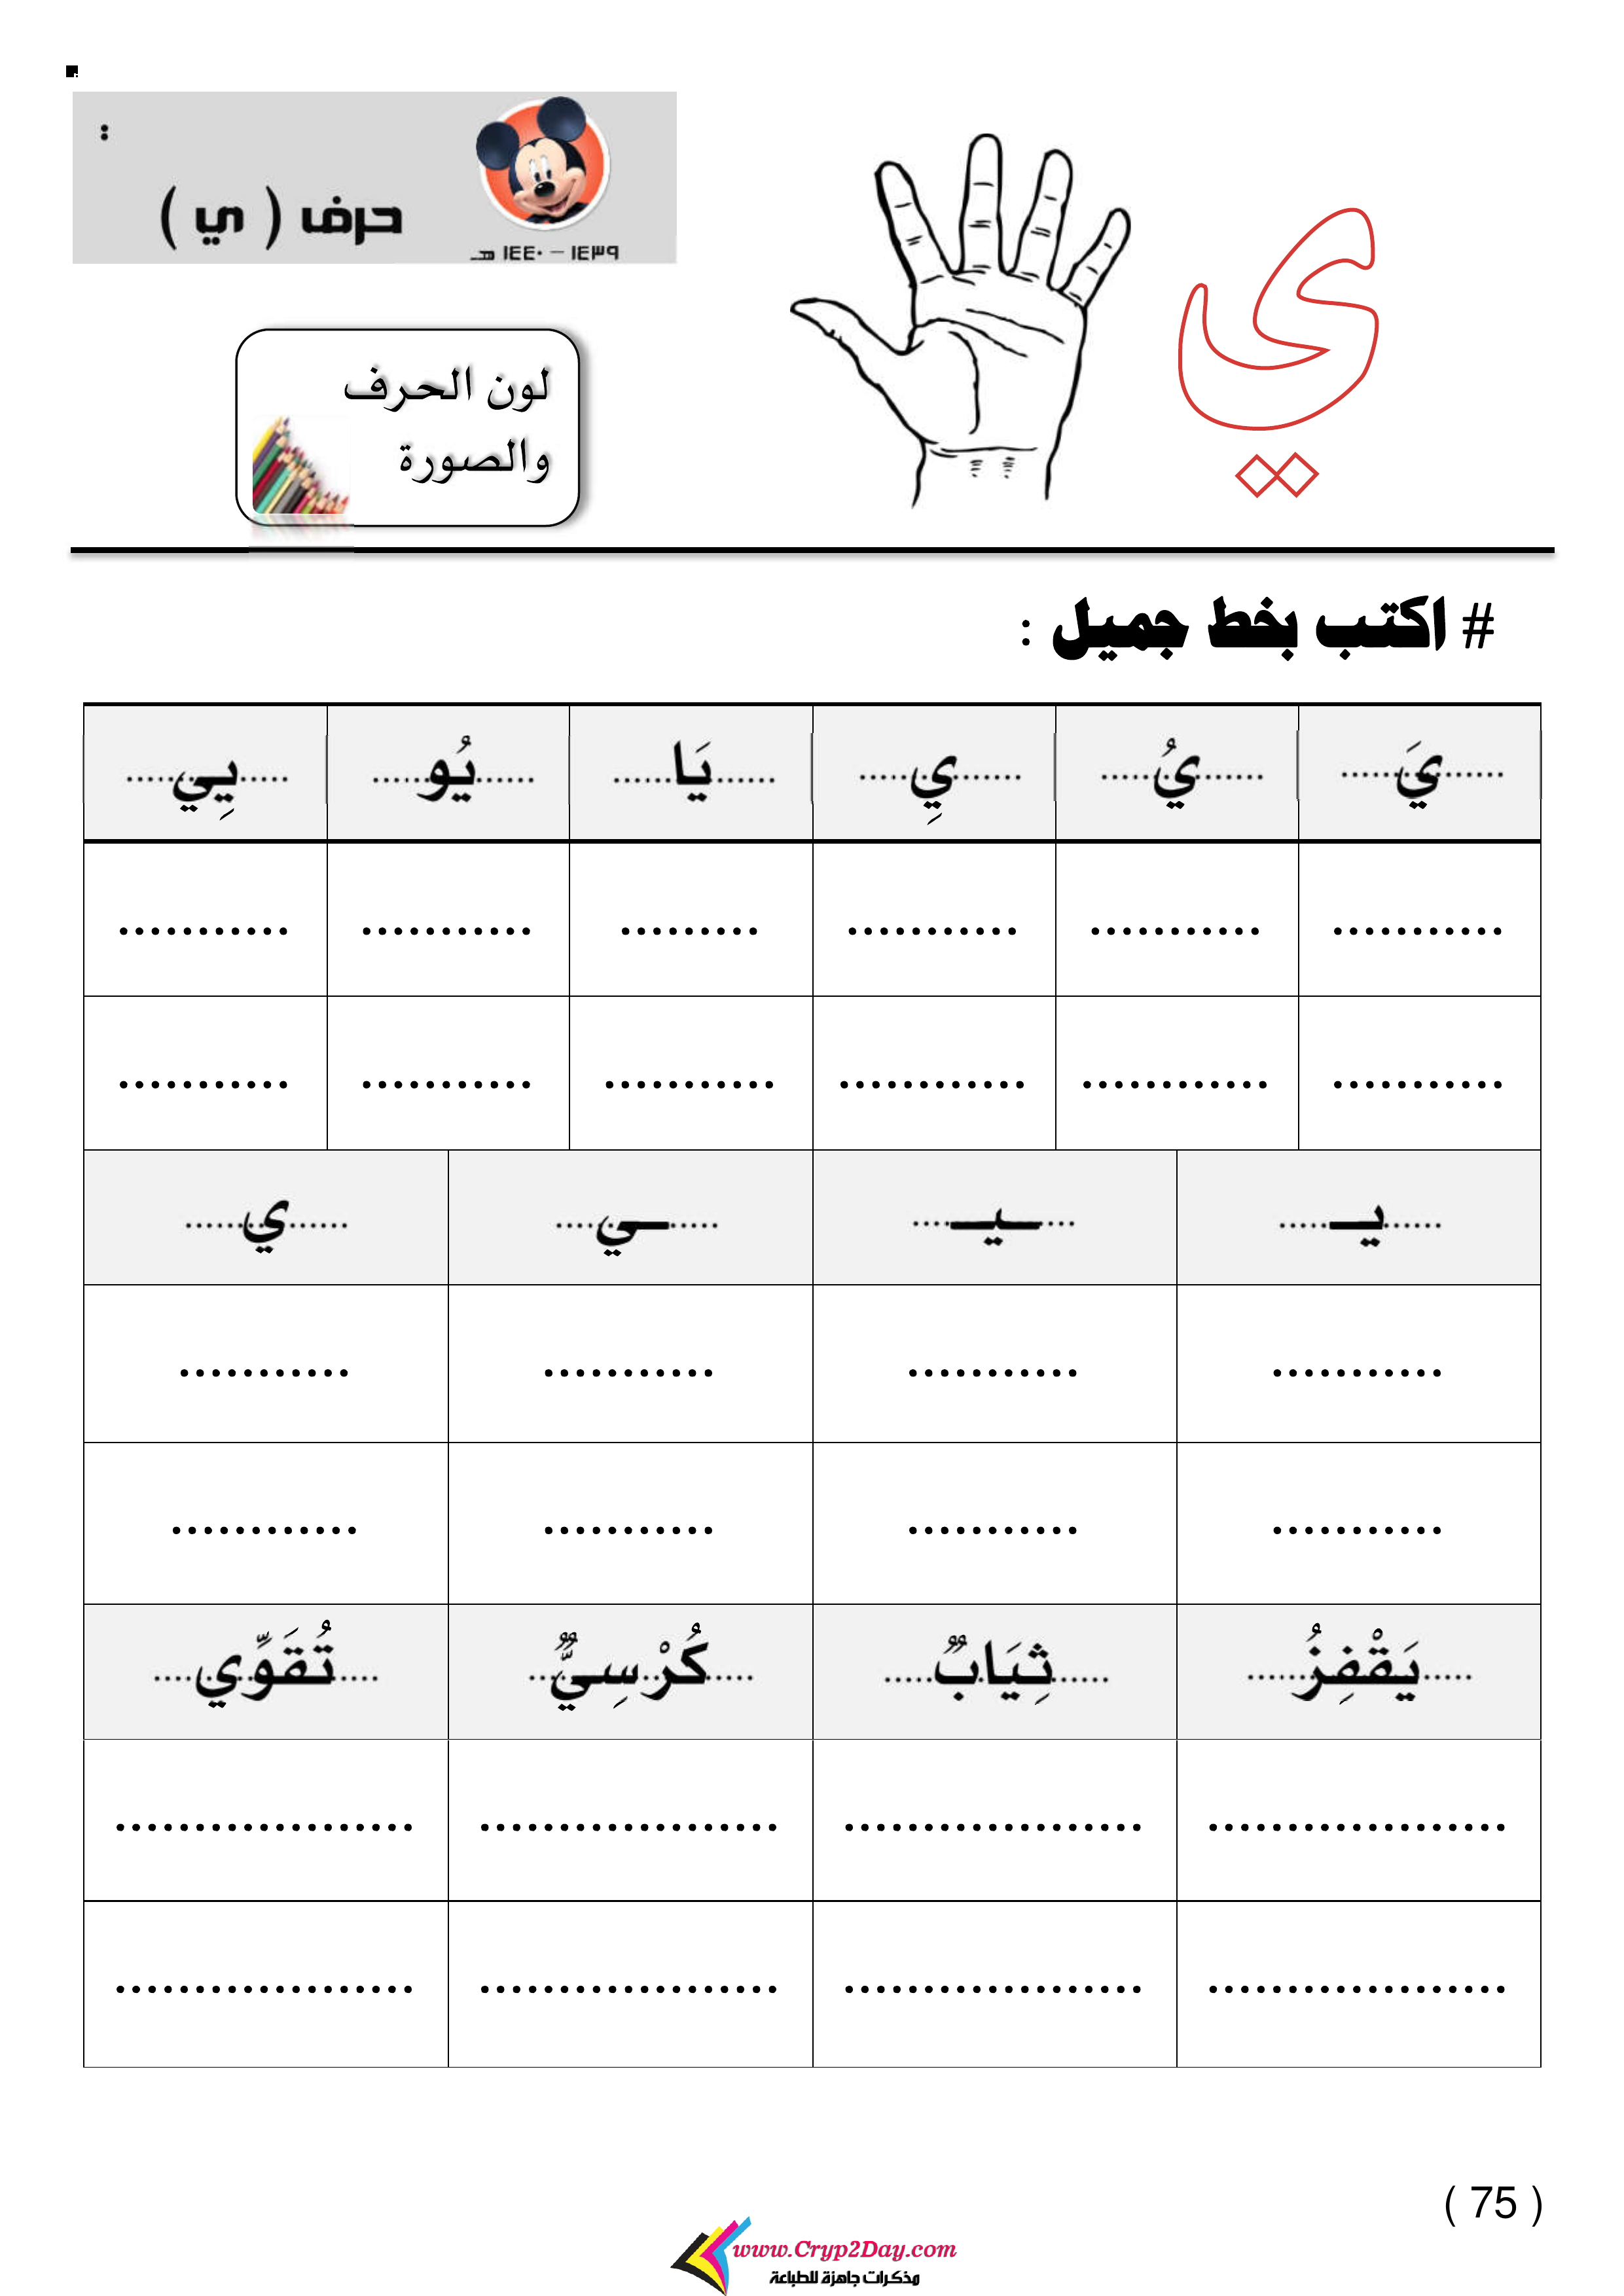 :
حرف ( ي )
١٤٣٩ – ١٤٤٠ هـ
ي
لون الحرف
والصورة
# اكتب بخط جميل :
يَ يُ يِ يَا يُو يِي
........... ........... ........... ......... ........... ...........
........... ............ ............ ........... ........... ...........
يـ ـيـ ـي ي
........... ........... ........... ...........
........... ........... ........... ............
يَقْفِزُ ثِيَابٌ كُرْسِيٌّ تُقَوِّي
................... ................... ................... ...................
................... ................... ................... ...................
( 75 )
www.Cryp2Day.com
مذكرات جاهزة للطباعة